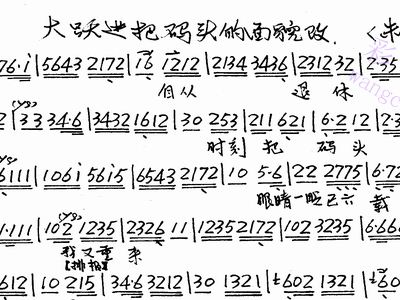 大跃进把码头的面貌改.
76·i|5643 2172|i6 1212|2134 3436|2312 32|2·35
自从 退休
2|33 34·6|3432 1612|30 253|211 621|6·2 12|2·3
时刻 把 码 头
6111|106i 56i5|6543 2172|10 5·6|22 2775|6·72
眼睛一眨已六 载
1·111|102 1235|2326 11|1235 2172|102 3235|6·666
我又重 来
612|10 215|34·6 3212|30 1321|602 1321|60